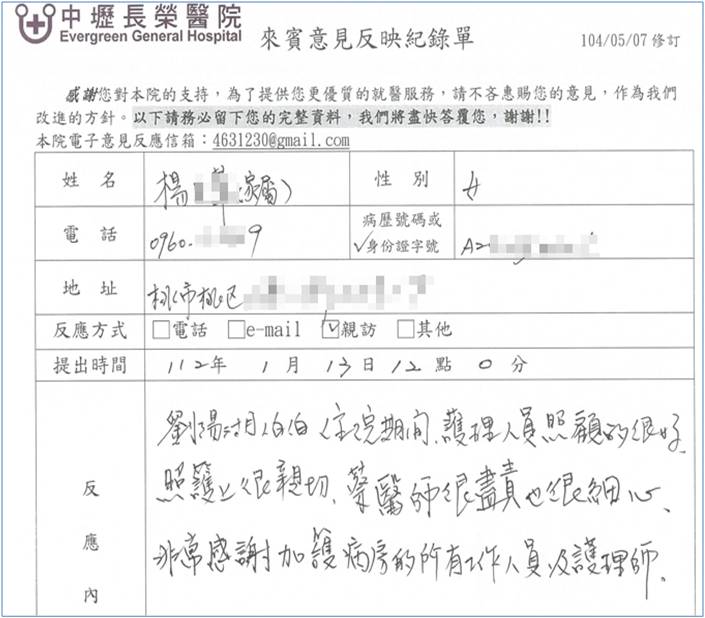 中壢長榮醫院
Evergreen General Hospital
來賓意見反映紀錄單
104/05/07 修訂
感謝您對本院的支持，為了提供您更優質的就醫服務，請不吝惠賜您的意見，作為我們
改進的方針。以下請務必留下您的完整資料，我們將盡快答覆您，謝謝!!
本院電子意見反應信箱：4631230@gmail.com
姓 名 楊 (家屬) 性 別 女
電 話 0960. 9 病歷號碼或
✓身份證字號 A2
地 址 桃市桃区
反應方式 □電話 □e-mail ☑親訪 □其他
提出時間 112年 1月 13日 12點 0分
反應內
劉陽 伯伯住院期间、護理人員照顧的很好
照護上很親切、蔡醫師很盡責也很細心、
非常感謝加護病房的所有工作人員及護理師.